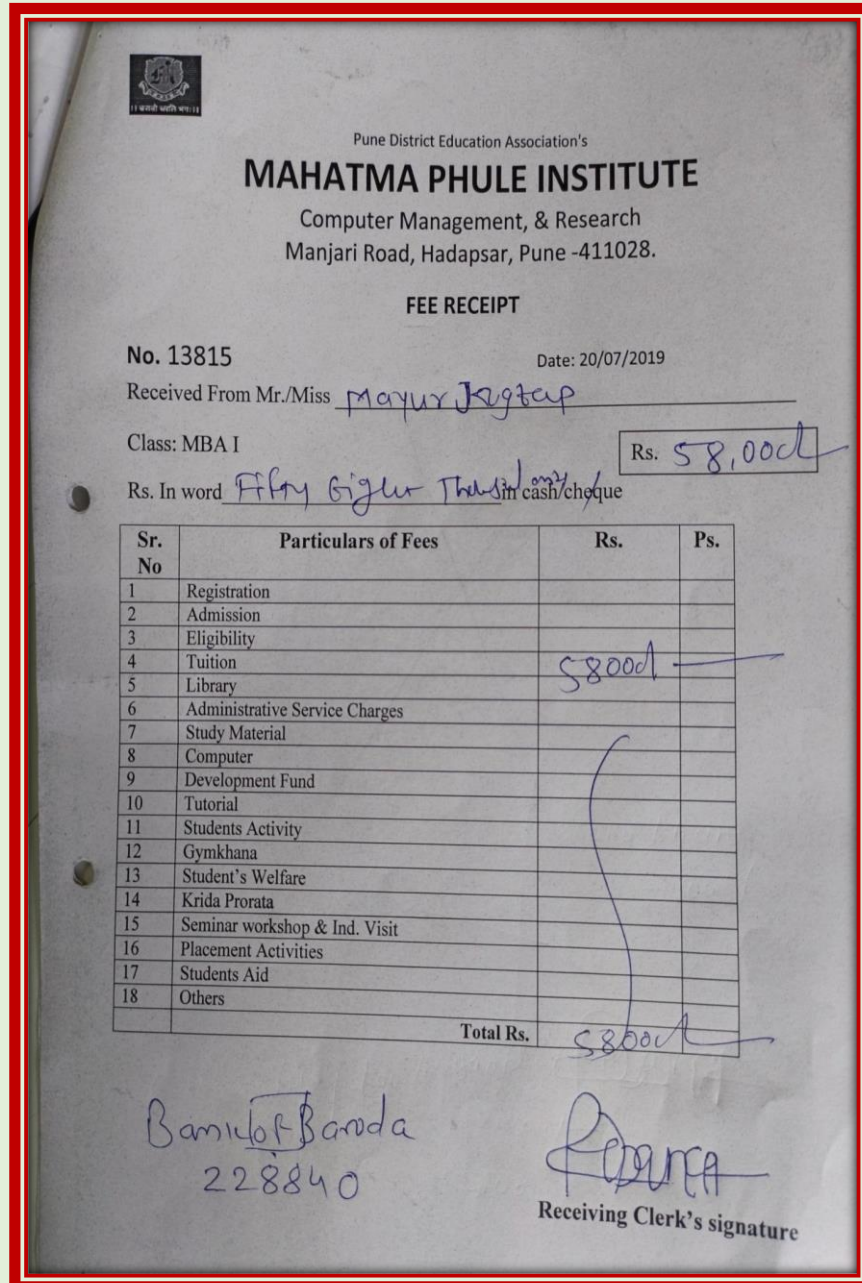 Pune District Education Association's
MAHATMA PHULE INSTITUTE
Computer Management, & Research
Manjari Road, Hadapsar, Pune -411028.
FEE RECEIPT
No. 13815 Date: 20/07/2019
Received From Mr./Miss Mayur Jagtap
Class: MBA I Rs. 58,000/-
Rs. In word Fifty Eight Thousand only in cash/cheque
Sr. No Particulars of Fees Rs. Ps.
1 Registration
2 Admission
3 Eligibility
4 Tuition 58000/-
5 Library
6 Administrative Service Charges
7 Study Material
8 Computer
9 Development Fund
10 Tutorial
11 Students Activity
12 Gymkhana
13 Student's Welfare
14 Krida Prorata
15 Seminar workshop & Ind. Visit
16 Placement Activities
17 Students Aid
18 Others
Total Rs. 58000/-
Bank of Baroda
228840
Receiving Clerk's signature